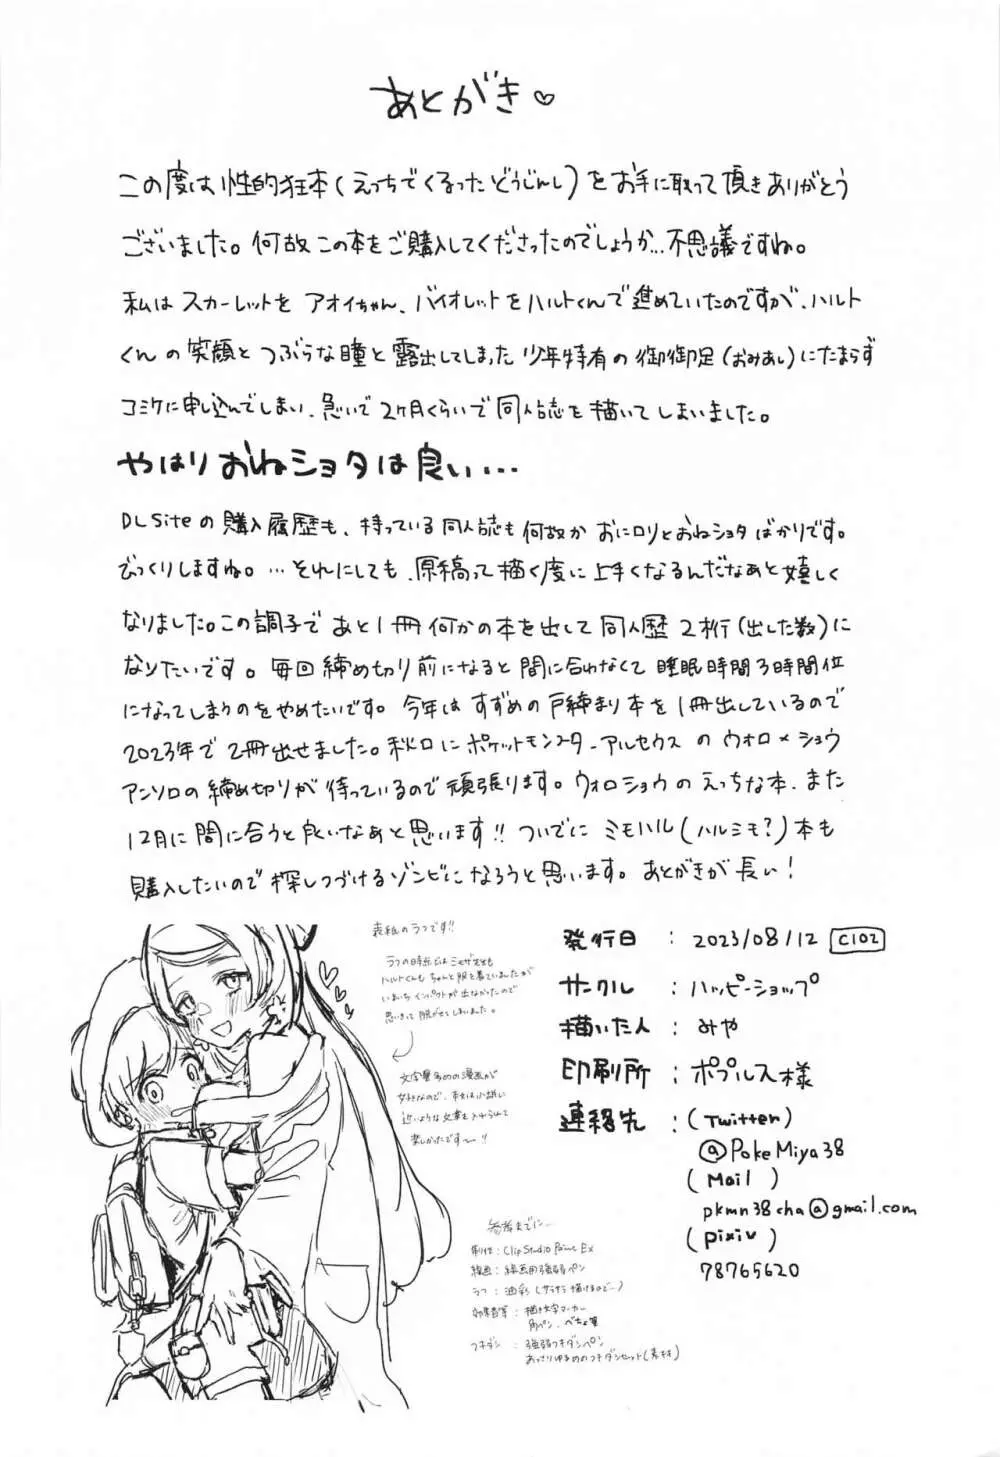 あとがき♡
この度は性的狂本(えっちでくるったどうじんし)をお手に取って頂きありがとう
ございました。何故この本をご購入してくださったのでしょうか…不思議ですね。
私はスカーレットをアオイちゃん、バイオレットをハルトくんで進めていたのですが、ハルト
くんの笑顔とつぶらな瞳と露出してしまった少年特有の御御足(おみあし)にたまらず
コミケに申し込んでしまい、急いで2ヶ月くらいで同人誌を描いてしまいました。
やはりおねショタは良い…
DLsiteの購入履歴も、持っている同人誌も何故かおにロリとおねショタばかりです。
びっくりしますね。…それにしても、原稿って描く度に上手くなるんだなあと嬉しく
なりました。この調子であと1冊何かの本を出して同人歴2桁(出した数)に
なりたいです。毎回締め切り前になると間に合わなくて睡眠時間3時間位
になってしまうのをやめたいです。今年はすずめの戸締まり本を1冊出しているので
2023年で2冊出せました。秋口にポケットモンスターアルセウスのウォロ×ショウ
アンソロの締め切りが待っているので頑張ります。ウォロショウのえっちな本、また
12月に間に合うと良いなあと思います!!ついでにミモハル(ハルミモ?)本も
購入したいので探しつづけるゾンビになろうと思います。あとがきが長い!
表紙のラフです!!
ラフの時点ではミモザ先生も
ハルトくんもちゃんと服を着ていましたが
いまいちインパクトが出なかったので
思いきって脱がせてしまいました。
文字量多めの漫画が
好きなので、
近いような文章を入れられて
楽しかったです〜!!
発行日 : 2023/08/12 C102
サークル : ハッピーショップ
描いた人 : みや
印刷所 : ポプルス様
連絡先 : (Twitter)
@PokeMiya38
(Mail)
pkmn38cha@gmail.com
(pixiv)
78765620
参考までに…
制作 : Clip Studio Paint Ex
線画 : 線画用強弱ペン
ラフ : 油彩
効果音等 : 描き文字マーカー
角ペン、べちょ筆
フキダシ : 強弱フキダシペン